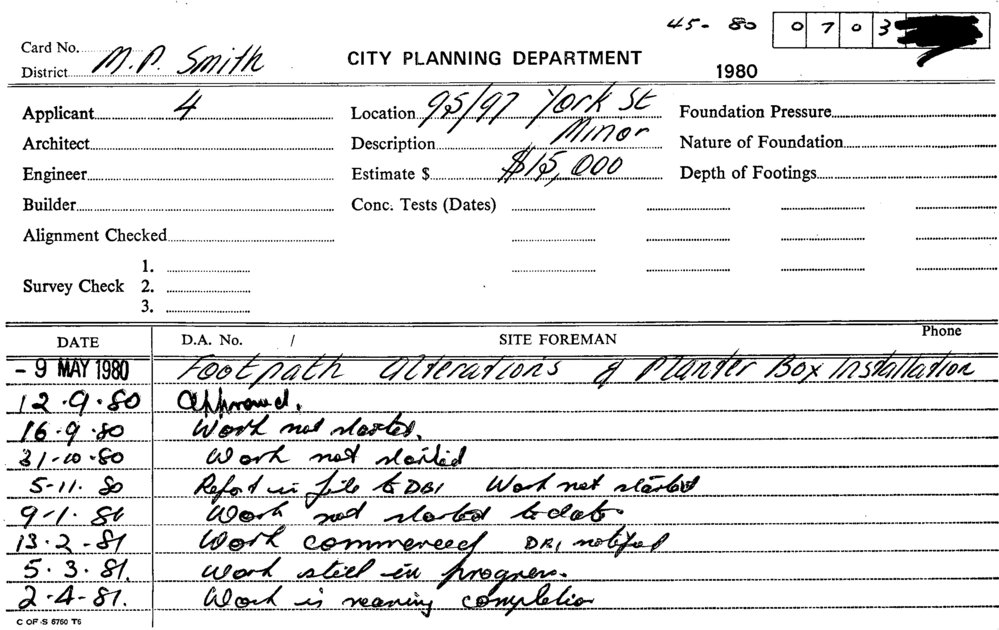 45- 80 0703
Card No.
District M.P. Smith
CITY PLANNING DEPARTMENT
1980
Applicant 4
Location 95/97 York St
Foundation Pressure
Architect
Description Minor
Nature of Foundation
Engineer
Estimate $ $15,000
Depth of Footings
Builder
Conc. Tests (Dates)
Alignment Checked
Survey Check 1.
2.
3.
DATE D.A. No. / SITE FOREMAN Phone
- 9 MAY 1980 Footpath alterations & Planter Box Installation
12.9.80 Approved.
16.9.80 Work not started.
31-10-80 Work not started
5-11.80 Report in file to DBI Work not started
9-1.81 Work not started to date
13.2-81 Work commenced DBI notified
5.3.81. Work still in progress.
2-4-81. Work is nearing completion
C OF S 6760 T6